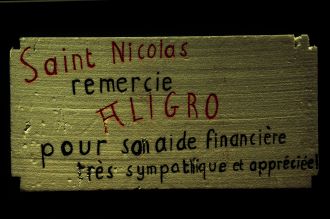 Saint Nicolas
remercie
ALIGRO
pour son aide financière
très sympathique et appréciée!